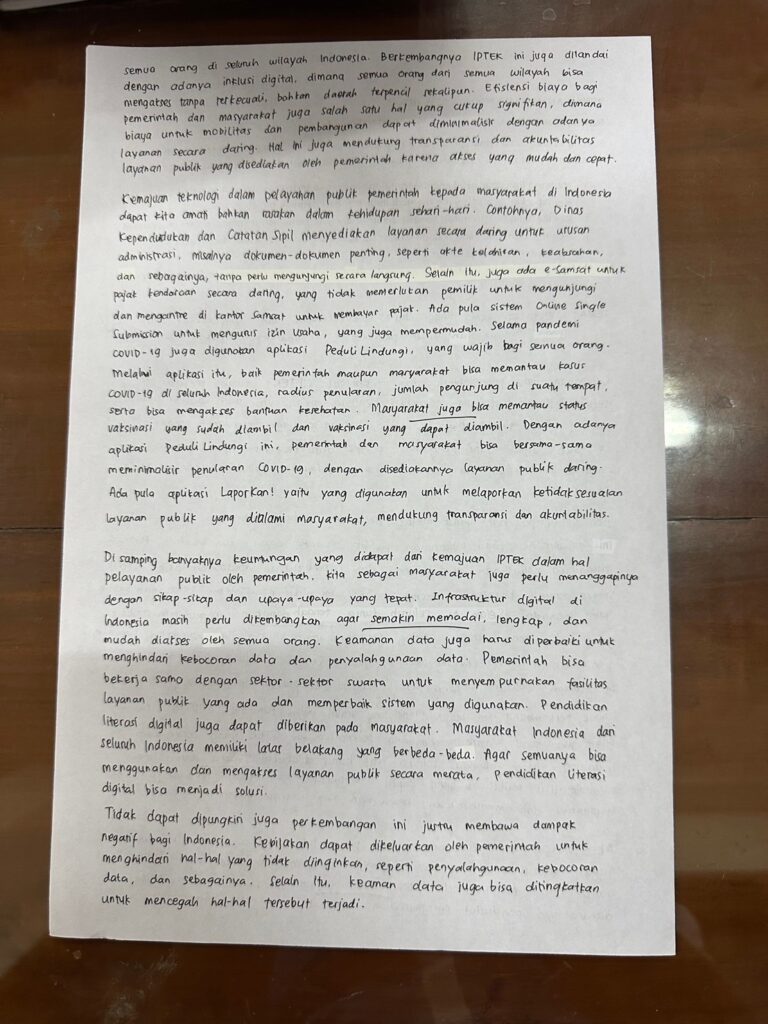 semua orang di seluruh wilayah Indonesia. Berkembangnya IPTEK ini juga ditandai
dengan adanya inklusi digital, dimana semua orang dari semua wilayah bisa
mengakses tanpa terkecuali, bahkan daerah terpencil sekalipun. Efisiensi biaya bagi
pemerintah dan masyarakat juga salah satu hal yang cukup signifikan, dimana
biaya untuk mobilitas dan pembangunan dapat diminimalisir dengan adanya
layanan secara daring. Hal ini juga mendukung transparansi dan akuntabilitas
layanan publik yang disediakan oleh pemerintah karena akses yang mudah dan cepat.
Kemajuan teknologi dalam pelayanan publik pemerintah kepada masyarakat di Indonesia
dapat kita amati bahkan rasakan dalam kehidupan sehari-hari. Contohnya, Dinas
Kependudukan dan Catatan Sipil menyediakan layanan secara daring untuk urusan
administrasi, misalnya dokumen-dokumen penting, seperti akte kelahiran, keabsahan,
dan sebagainya, tanpa perlu mengunjungi secara langsung. Selain itu, juga ada e-Samsat untuk
pajak kendaraan secara daring, yang tidak memerlukan pemilik untuk mengunjungi
dan mengantre di kantor Samsat untuk membayar pajak. Ada pula sistem Online Single
Submission untuk mengurus izin usaha, yang juga mempermudah. Selama pandemi
COVID-19 juga digunakan aplikasi Peduli Lindungi, yang wajib bagi semua orang.
Melalui aplikasi itu, baik pemerintah maupun masyarakat bisa memantau kasus
COVID-19 di seluruh Indonesia, radius penularan, jumlah pengunjung di suatu tempat,
serta bisa mengakses bantuan kesehatan. Masyarakat juga bisa memantau status
vaksinasi yang sudah diambil dan vaksinasi yang dapat diambil. Dengan adanya
aplikasi Peduli Lindungi ini, pemerintah dan masyarakat bisa bersama-sama
meminimalisir penularan COVID-19, dengan disediakannya layanan publik daring.
Ada pula aplikasi LaporKan! yaitu yang digunakan untuk melaporkan ketidaksesuaian
layanan publik yang dialami masyarakat, mendukung transparansi dan akuntabilitas.
Di samping banyaknya keuntungan yang didapat dari kemajuan IPTEK dalam hal
pelayanan publik oleh pemerintah, kita sebagai masyarakat juga perlu menanggapinya
dengan sikap-sikap dan upaya-upaya yang tepat. Infrastruktur digital di
Indonesia masih perlu dikembangkan agar semakin memadai, lengkap, dan
mudah diakses oleh semua orang. Keamanan data juga harus diperbaiki untuk
menghindari kebocoran data dan penyalahgunaan data. Pemerintah bisa
bekerja sama dengan sektor-sektor swasta untuk menyempurnakan fasilitas
layanan publik yang ada dan memperbaik sistem yang digunakan. Pendidikan
literasi digital juga dapat diberikan pada masyarakat. Masyarakat Indonesia dari
seluruh Indonesia memiliki latar belakang yang berbeda-beda. Agar semuanya bisa
menggunakan dan mengakses layanan publik secara merata, pendidikan literasi
digital bisa menjadi solusi.
Tidak dapat dipungkiri juga perkembangan ini justru membawa dampak
negatif bagi Indonesia. Kebijakan dapat dikeluarkan oleh pemerintah untuk
menghindari hal-hal yang tidak diinginkan, seperti penyalahgunaan, kebocoran
data, dan sebagainya. Selain itu, keaman data juga bisa ditingkatkan
untuk mencegah hal-hal tersebut terjadi.